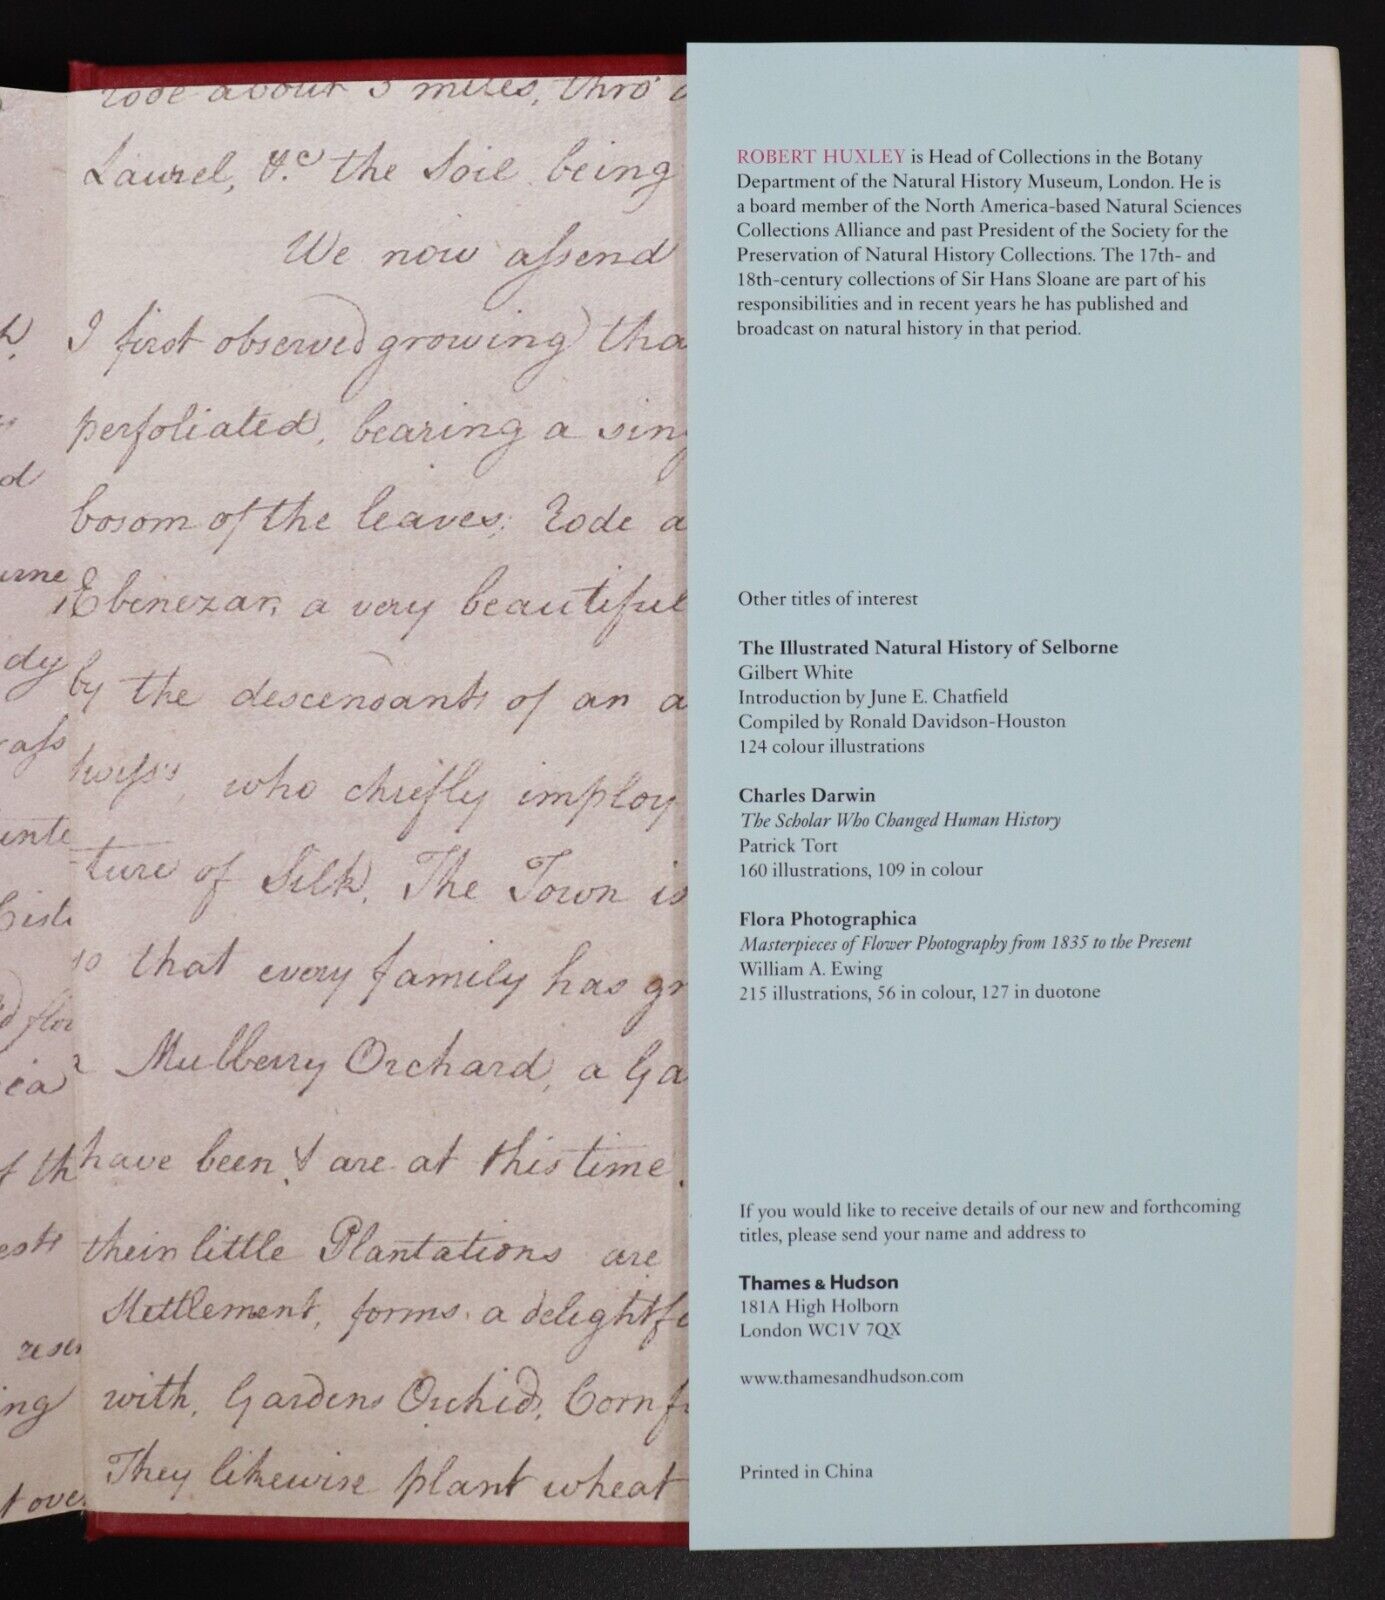 rode about 3 miles, thro'
Laurel, &c the Soil being
We now assend
I first observed growing tha
perfoliated, bearing a sing
bosom of the leaves; rode a
Ebenezar, a very beautiful
by the descendants of an a
who chiefly imploy
ture of Silk. The Town is
so that every family has gr
Mulberry Orchard, a Ga
have been & are at this time
their little Plantations are
Settlement, forms a delightfu
with, Gardens Orchids, Corn f
They likewise plant wheat
ROBERT HUXLEY is Head of Collections in the Botany
Department of the Natural History Museum, London. He is
a board member of the North America-based Natural Sciences
Collections Alliance and past President of the Society for the
Preservation of Natural History Collections. The 17th- and
18th-century collections of Sir Hans Sloane are part of his
responsibilities and in recent years he has published and
broadcast on natural history in that period.
Other titles of interest
The Illustrated Natural History of Selborne
Gilbert White
Introduction by June E. Chatfield
Compiled by Ronald Davidson-Houston
124 colour illustrations
Charles Darwin
The Scholar Who Changed Human History
Patrick Tort
160 illustrations, 109 in colour
Flora Photographica
Masterpieces of Flower Photography from 1835 to the Present
William A. Ewing
215 illustrations, 56 in colour, 127 in duotone
If you would like to receive details of our new and forthcoming
titles, please send your name and address to
Thames & Hudson
181A High Holborn
London WC1V 7QX
www.thamesandhudson.com
Printed in China